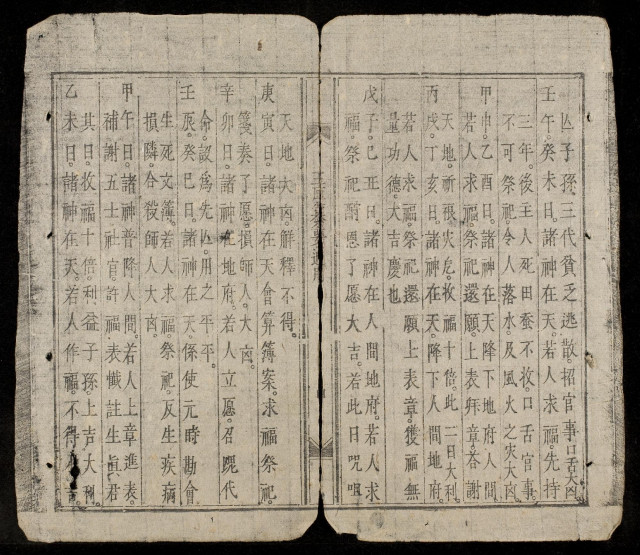 亾子孫三代貧乏逃散。招官事口舌大凶
壬午。癸未日。諸神在天。若人求福。先持
三年。後主人死田蚕不收。口舌官事。
不可祭祀。令人落水。及風火之灾大凶
甲申。乙酉日。諸神在天。降下地府人間
若人求福。祭祀還願。上表拜章。答謝
丙戌。丁亥日。諸神在天。降下人間地府。
天地。祈禳灾危。收福十倍。此二日大利。
若人求福。祭祀還願。上表章。獲福無
量功德。大吉慶也
戊子。己丑日。諸神在人間地府。若人求
福。祭祀酧恩了愿大吉。若此日咒咀
天地大凶。解釋不得。
庚寅日。諸神在天會算簿案。求福祭祀。
辛卯日。諸神在地府。若人立愿。召䰟代
箋奏了愿。損師人。大凶。
命。設爲先亾。用之平平。
壬辰。癸巳日。諸神在天。係使元時勘會
生死文簿。若人求福。祭祀。反生疾病
損隣。令殺師人大凶。
甲午日。諸神普降人間。若人上章進表。
補謝五土社官許福。表懺註生真君
其日。收福十倍。利益子孫。上吉大利。
乙未日。諸神在天。若人作福。不得